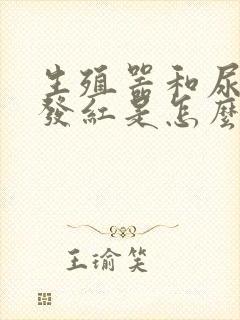 生殖器和尿
發紅是怎麼
王瑜笑